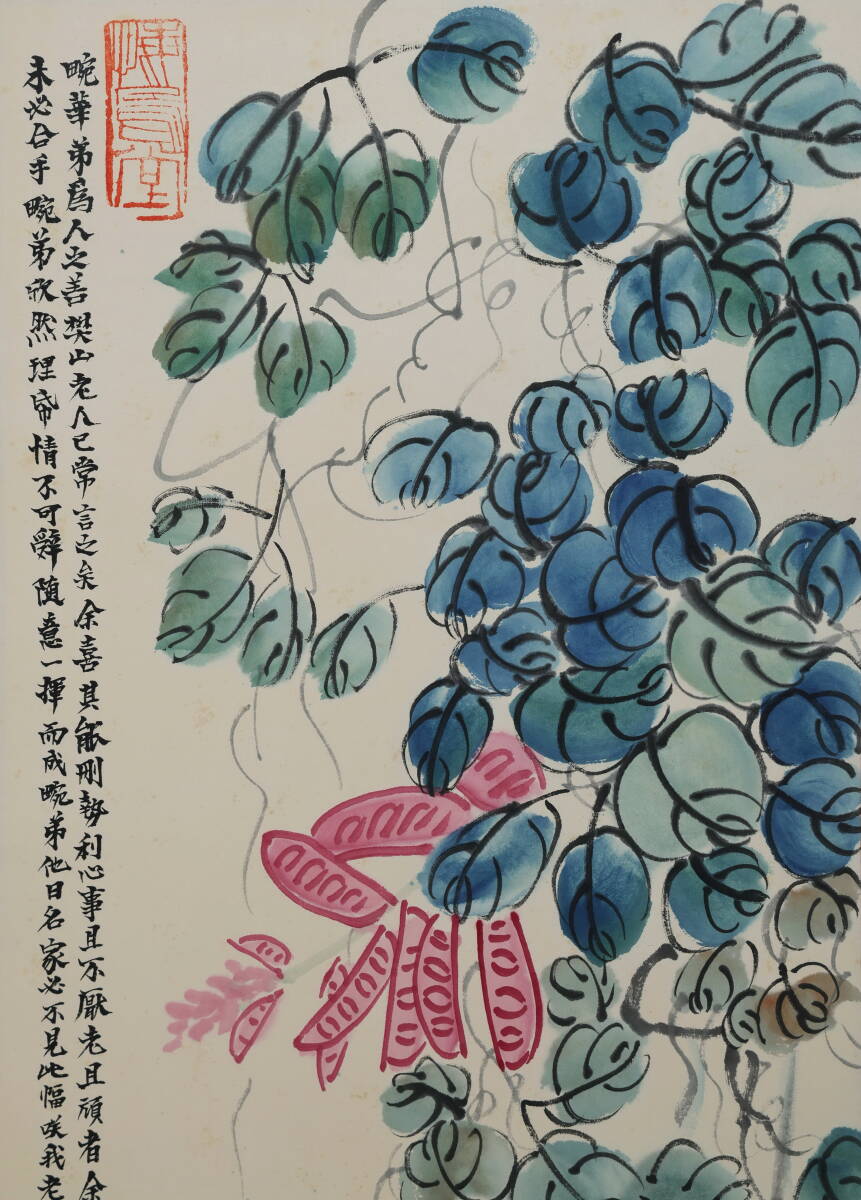 悔烏堂
畹華弟爲人之善樊山老人已常言之矣余喜其能刪勢利心事且不厭老且頑者余
未必合手畹弟欣然理帋情不可辭随意一揮而成畹弟他日名家必不見此幅咲我老